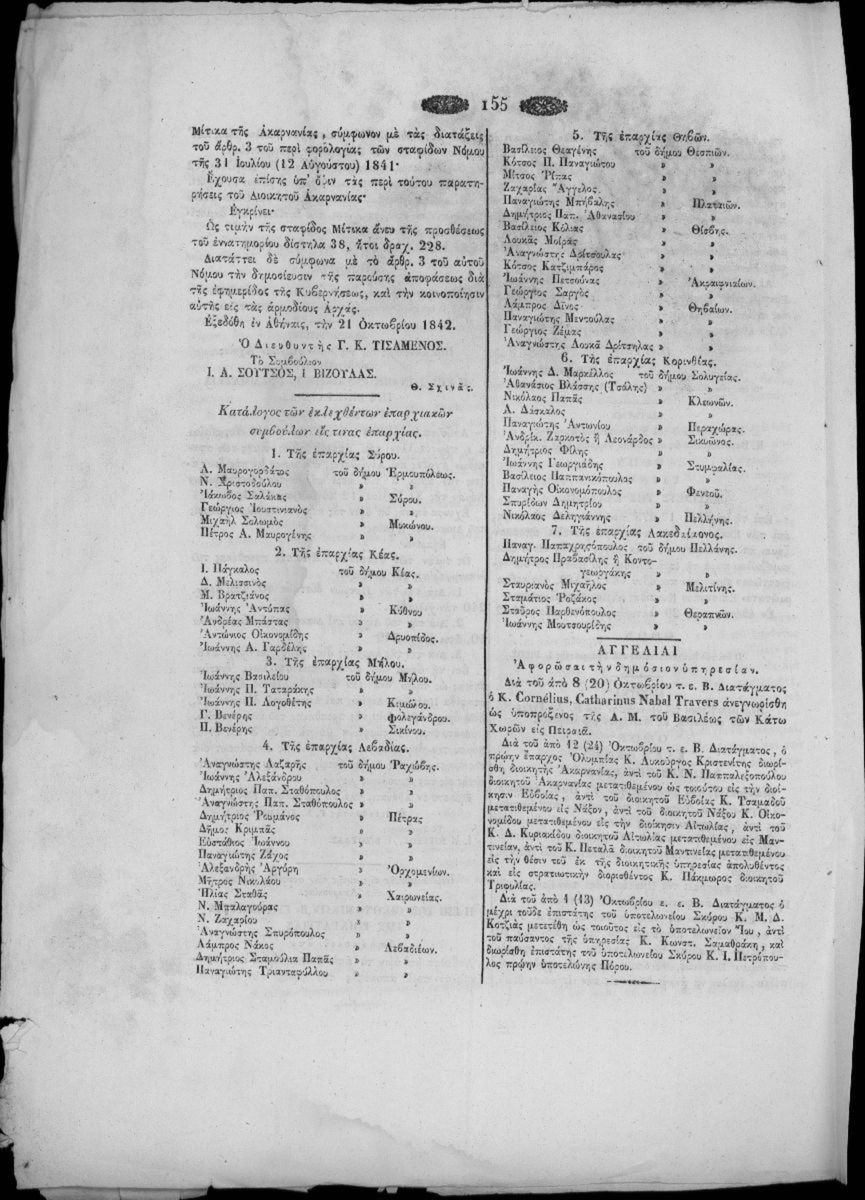 155
Μίτικα τῆς Ἀκαρνανίας, σύμφωνον μὲ τὰς διατάξεις
τοῦ ἄρθρ. 3 τοῦ περὶ φορολογίας τῶν σταφίδων Νόμου
τῆς 31 Ἰουλίου (12 Αὐγούστου) 1841·
Ἔχουσα ἐπίσης ὑπ' ὄψιν τὰς περὶ τούτου παρατη-
ρήσεις τοῦ Διοικητοῦ Ἀκαρνανίας·
Ἐγκρίνει·
Ὡς τιμὴν τῆς σταφίδος Μίτικα ἄνευ τῆς προσθέσεως
τοῦ ἐννατημορίου δίστηλα 38, ἤτοι δραχ. 228.
Διατάττει δὲ σύμφωνα μὲ τὸ ἄρθρ. 3 τοῦ αὐτοῦ
Νόμου τὴν δημοσίευσιν τῆς παρούσης ἀποφάσεως διὰ
τῆς ἐφημερίδος τῆς Κυβερνήσεως, καὶ τὴν κοινοποίησιν
αὐτῆς εἰς τὰς ἁρμοδίους Ἀρχάς.
Ἐξεδόθη ἐν Ἀθήναις, τὴν 21 Ὀκτωβρίου 1842.
Ὁ Διευθυντὴς Γ. Κ. ΤΙΣΑΜΕΝΟΣ.
Τὸ Συμβούλιον
Ι. Α. ΣΟΥΤΣΟΣ, Ι ΒΙΖΟΥΛΑΣ.
Θ. Σχινᾶς.
Κατάλογος τῶν ἐκλεχθέντων ἐπαρχιακῶν
συμβούλων εἴς τινας ἐπαρχίας.
1. Τῆς ἐπαρχίας Σύρου.
Α. Μαυρογορδάτος τοῦ δήμου Ἑρμουπόλεως.
Ν. Χριστοδούλου » »
Ἰάκωβος Σαλάχας » Σύρου.
Γεώργιος Ἰουστινιανὸς » »
Μιχαὴλ Σολωμὸς » Μυκώνου.
Πέτρος Α. Μαυρογένης » »
2. Τῆς ἐπαρχίας Κέας.
Ι. Πάγκαλος τοῦ δήμου Κέας.
Δ. Μελισσινὸς » »
Μ. Βρατζιάνος » »
Ἰωάννης Ἀντύπας » Κύθνου
Ἀνδρέας Μπάστας » »
Ἀντώνιος Οἰκονομίδης » Δρυοπίδος.
Ἰωάννης Α. Γαρδέλης » »
3. Τῆς ἐπαρχίας Μήλου.
Ἰωάννης Βασιλείου τοῦ δήμου Μήλου.
Ἰωάννης Π. Ταταράκης » »
Ἰωάννης Π. Λογοθέτης » Κιμώλου.
Γ. Βενέρης » Φολεγάνδρου.
Π. Βενέρης » Σικίνου.
4. Τῆς ἐπαρχίας Λεβαδίας.
Ἀναγνώστης Λαζαρῆς τοῦ δήμου Ῥαχώβης.
Ἰωάννης Ἀλεξάνδρου » »
Δημήτριος Παπ. Σταθόπουλος » »
Ἀναγνώστης Παπ. Σταθόπουλος » »
Δημήτριος Ῥουμάνος » Πέτρας
Δῆμος Κριμπᾶς » »
Εὐστάθιος Ἰωάννου » »
Παναγιώτης Ζάχος » »
Ἀλεξανδρῆς Ἀργύρη » Ὀρχομενίων.
Μῆτρος Νικολάου » »
Ἠλίας Σταθᾶς » Χαιρωνείας.
Ν. Μπαλαγούρας » »
Ν. Ζαχαρίου » »
Ἀναγνώστης Σπυρόπουλος » »
Λάμπρος Νάκος » Λεβαδιέων.
Δημήτριος Σταμούλια Παπᾶς » »
Παναγιώτης Τριανταφύλλου » »
5. Τῆς ἐπαρχίας Θηβῶν.
Βασίλειος Θεαγένης τοῦ δήμου Θεσπιῶν.
Κότσος Π. Παναγιώτου » »
Μίτσος Ῥίπας » »
Ζαχαρίας Ἄγγελος » »
Παναγιώτης Μπήβαλης » Πλαταιῶν.
Δημήτριος Παπ. Ἀθανασίου » »
Βασίλειος Κόλιας » Θίσβης.
Λουκᾶς Μοίρας » »
Ἀναγνώστης Δρίτσουλας » »
Κότσος Κατζιμπάρος » »
Ἰωάννης Πετσούνας » Ἀκραιφνιαίων.
Γεώργιος Σαργὸς » »
Λάμπρος Δῖνος » Θηβαίων.
Παναγιώτης Μεντούλας » »
Γεώργιος Ζέμας » »
Ἀναγνώστης Λουκᾶ Δρίτσηλας » »
6. Τῆς ἐπαρχίας Κορινθίας.
Ἰωάννης Δ. Μαρκέλλος τοῦ δήμου Σολυγείας.
Ἀθανάσιος Βλάσσης (Τσάλης) » »
Νικόλαος Παπᾶς » Κλεωνῶν.
Α. Δάσκαλος » »
Παναγιώτης Ἀντωνίου » Περαχώρας.
Ἀνδρίκ. Ζαρκοτὸς ἢ Λεονάρδος » Σικυῶνος.
Δημήτριος Φίλης » »
Ἰωάννης Γεωργιάδης » Στυμφαλίας.
Βασίλειος Παππανικόπουλος » »
Παναγὴς Οἰκονομόπουλος » Φενεοῦ.
Σπυρίδων Δημητρίου » »
Νικόλαος Δεληγιάννης » Πελλήνης.
7. Τῆς ἐπαρχίας Λακεδαίμονος.
Παναγ. Παπαχρησόπουλος τοῦ δήμου Πελλάνης.
Δημήτρος Πραβασίλης ἢ Κοντο-
γεωργάκης » »
Σταυριανὸς Μιχαῆλος » Μελιτίνης.
Σταμάτιος Ῥοζάκος » »
Σταῦρος Παρθενόπουλος » Θεραπνῶν.
Ἰωάννης Μουτσουρίδης » »
ΑΓΓΕΛΙΑΙ
Ἀφορῶσαι τὴν δημόσιον ὑπηρεσίαν.
Διὰ τοῦ ἀπὸ 8 (20) Ὀκτωβρίου τ. ε. Β. Διατάγματος
ὁ Κ. Cornélius, Catharinus Nabal Travers ἀνεγνωρίσθη
ὡς ὑποπρόξενος τῆς Α. Μ. τοῦ Βασιλέως τῶν Κάτω
Χωρῶν εἰς Πειραιᾶ.
Διὰ τοῦ ἀπὸ 12 (24) Ὀκτωβρίου τ. ε. Β. Διατάγματος, ὁ
πρώην ἔπαρχος Ὀλυμπίας Κ. Λυκοῦργος Κρεστενίτης διωρί-
σθη διοικητὴς Ἀκαρνανίας, ἀντὶ τοῦ Κ. Ν. Παππαλεξοπούλου
διοικητοῦ Ἀκαρνανίας μετατιθεμένου ὡς τοιούτου εἰς τὴν διοί-
κησιν Εὐβοίας, ἀντὶ τοῦ διοικητοῦ Εὐβοίας Κ. Τσαμαδοῦ
μετατιθεμένου εἰς Νάξον, ἀντὶ τοῦ διοικητοῦ Νάξου Κ. Οἰκο-
νομίδου μετατιθεμένου εἰς τὴν διοίκησιν Αἰτωλίας, ἀντὶ τοῦ
Κ. Δ. Κυριακίδου διοικητοῦ Αἰτωλίας μετατιθεμένου εἰς Μαν-
τινείαν, ἀντὶ τοῦ Κ. Πεταλᾶ διοικητοῦ Μαντινείας μετατιθεμένου
εἰς τὴν θέσιν τοῦ ἐκ τῆς διοικητικῆς ὑπηρεσίας ἀπολυθέντος
καὶ εἰς στρατιωτικὴν διορισθέντος Κ. Πάκμωρος διοικητοῦ
Τριφυλίας.
Διὰ τοῦ ἀπὸ 1 (13) Ὀκτωβρίου ε. ε. Β. Διατάγματος ὁ
μέχρι τοῦδε ἐπιστάτης τοῦ ὑποτελωνείου Σκύρου Κ. Μ. Δ.
Κοτζιᾶς μετετέθη ὡς τοιοῦτος εἰς τὸ ὑποτελωνεῖον Ἴου, ἀντὶ
τοῦ παύσαντος τῆς ὑπηρεσίας Κ. Κωνστ. Σαμαθράκη, καὶ
διωρίσθη ἐπιστάτης τοῦ ὑποτελωνείου Σκύρου Κ. Ι. Πετρόπου-
λος πρώην ὑποτελώνης Πόρου.